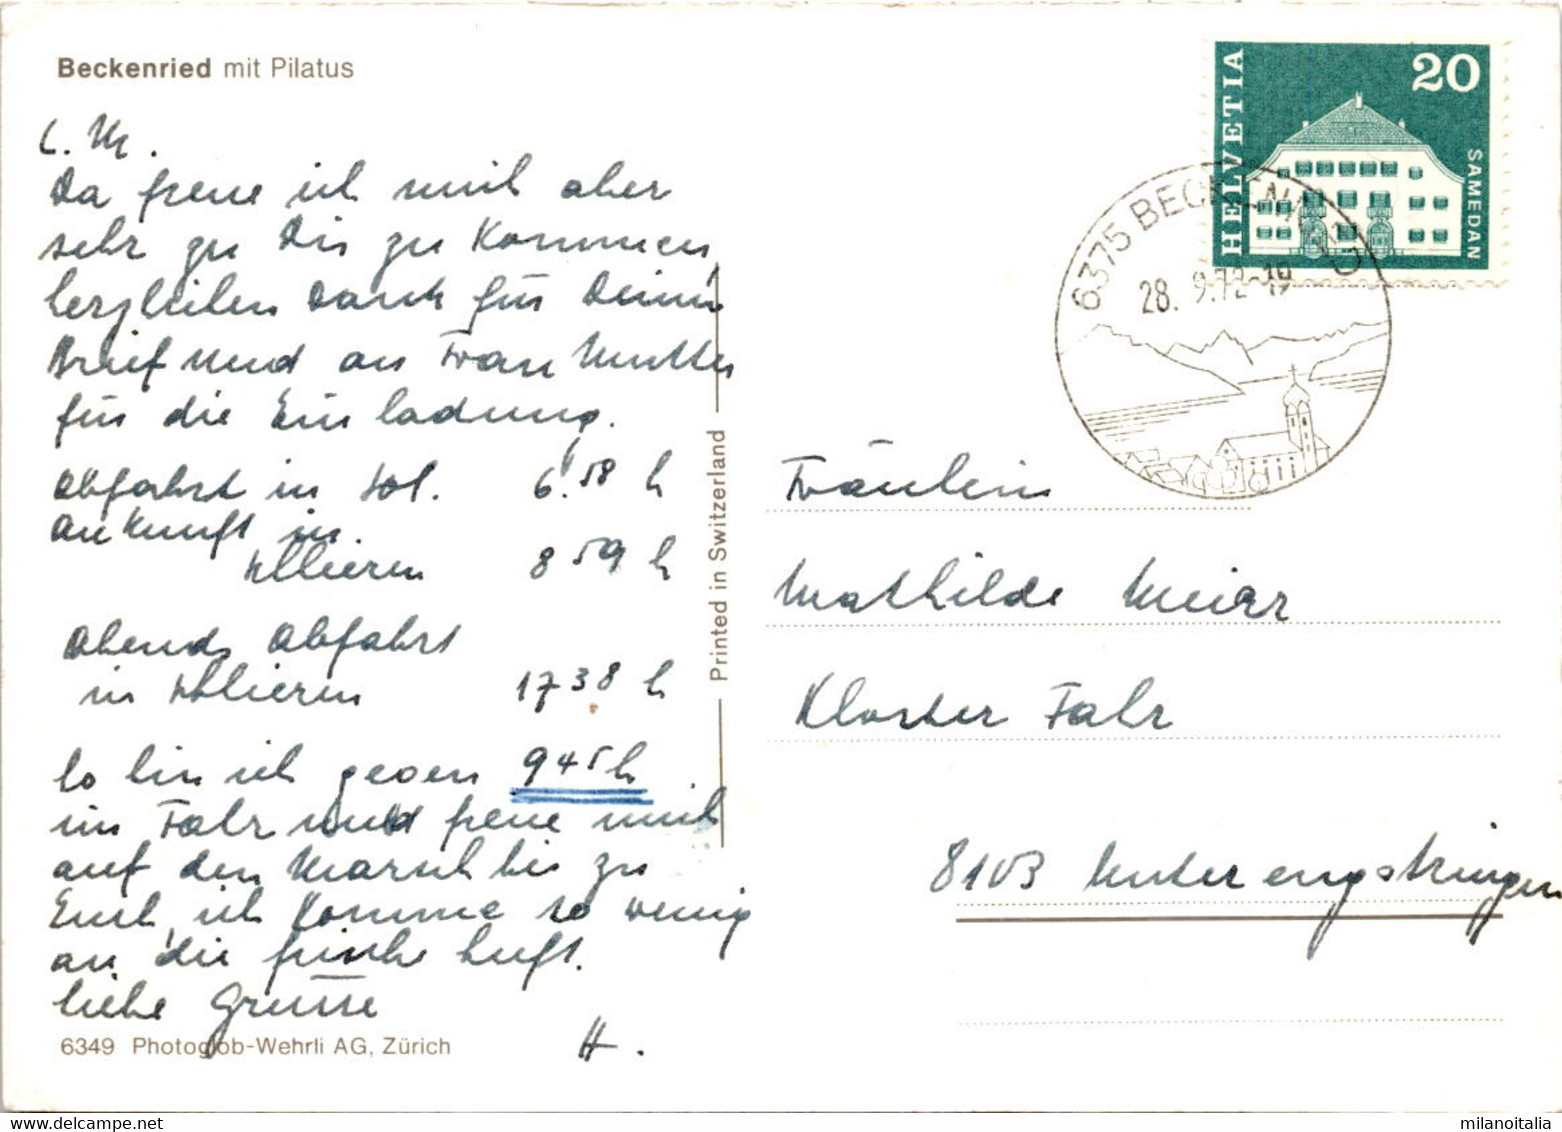 Beckenried mit Pilatus
HELVETIA
20
SAMEDAN
6375 BECKENRIED
28. 9.72-19
L. M.
Da freue ich mich aber
sehr zu Dir zu kommen,
herzlichen Dank für Deinen
Brief und an Frau Mutter
für die Einladung.
Abfahrt in Sol. 6.58 h
Ankunft in
Schlieren 8 59 h
Abends Abfahrt
in Schlieren 17 38 h
So bin ich gegen 9 45 h
im Fahr und freue mich
auf den Marsch bis zu
Euch, ich komme so wenig
an die frische Luft.
liebe Grüsse
H.
6349 Photoglob-Wehrli AG, Zürich
Printed in Switzerland
Fräulein
Mathilde Meier
Kloster Fahr
8103 Unterengstringen
milanoitalia